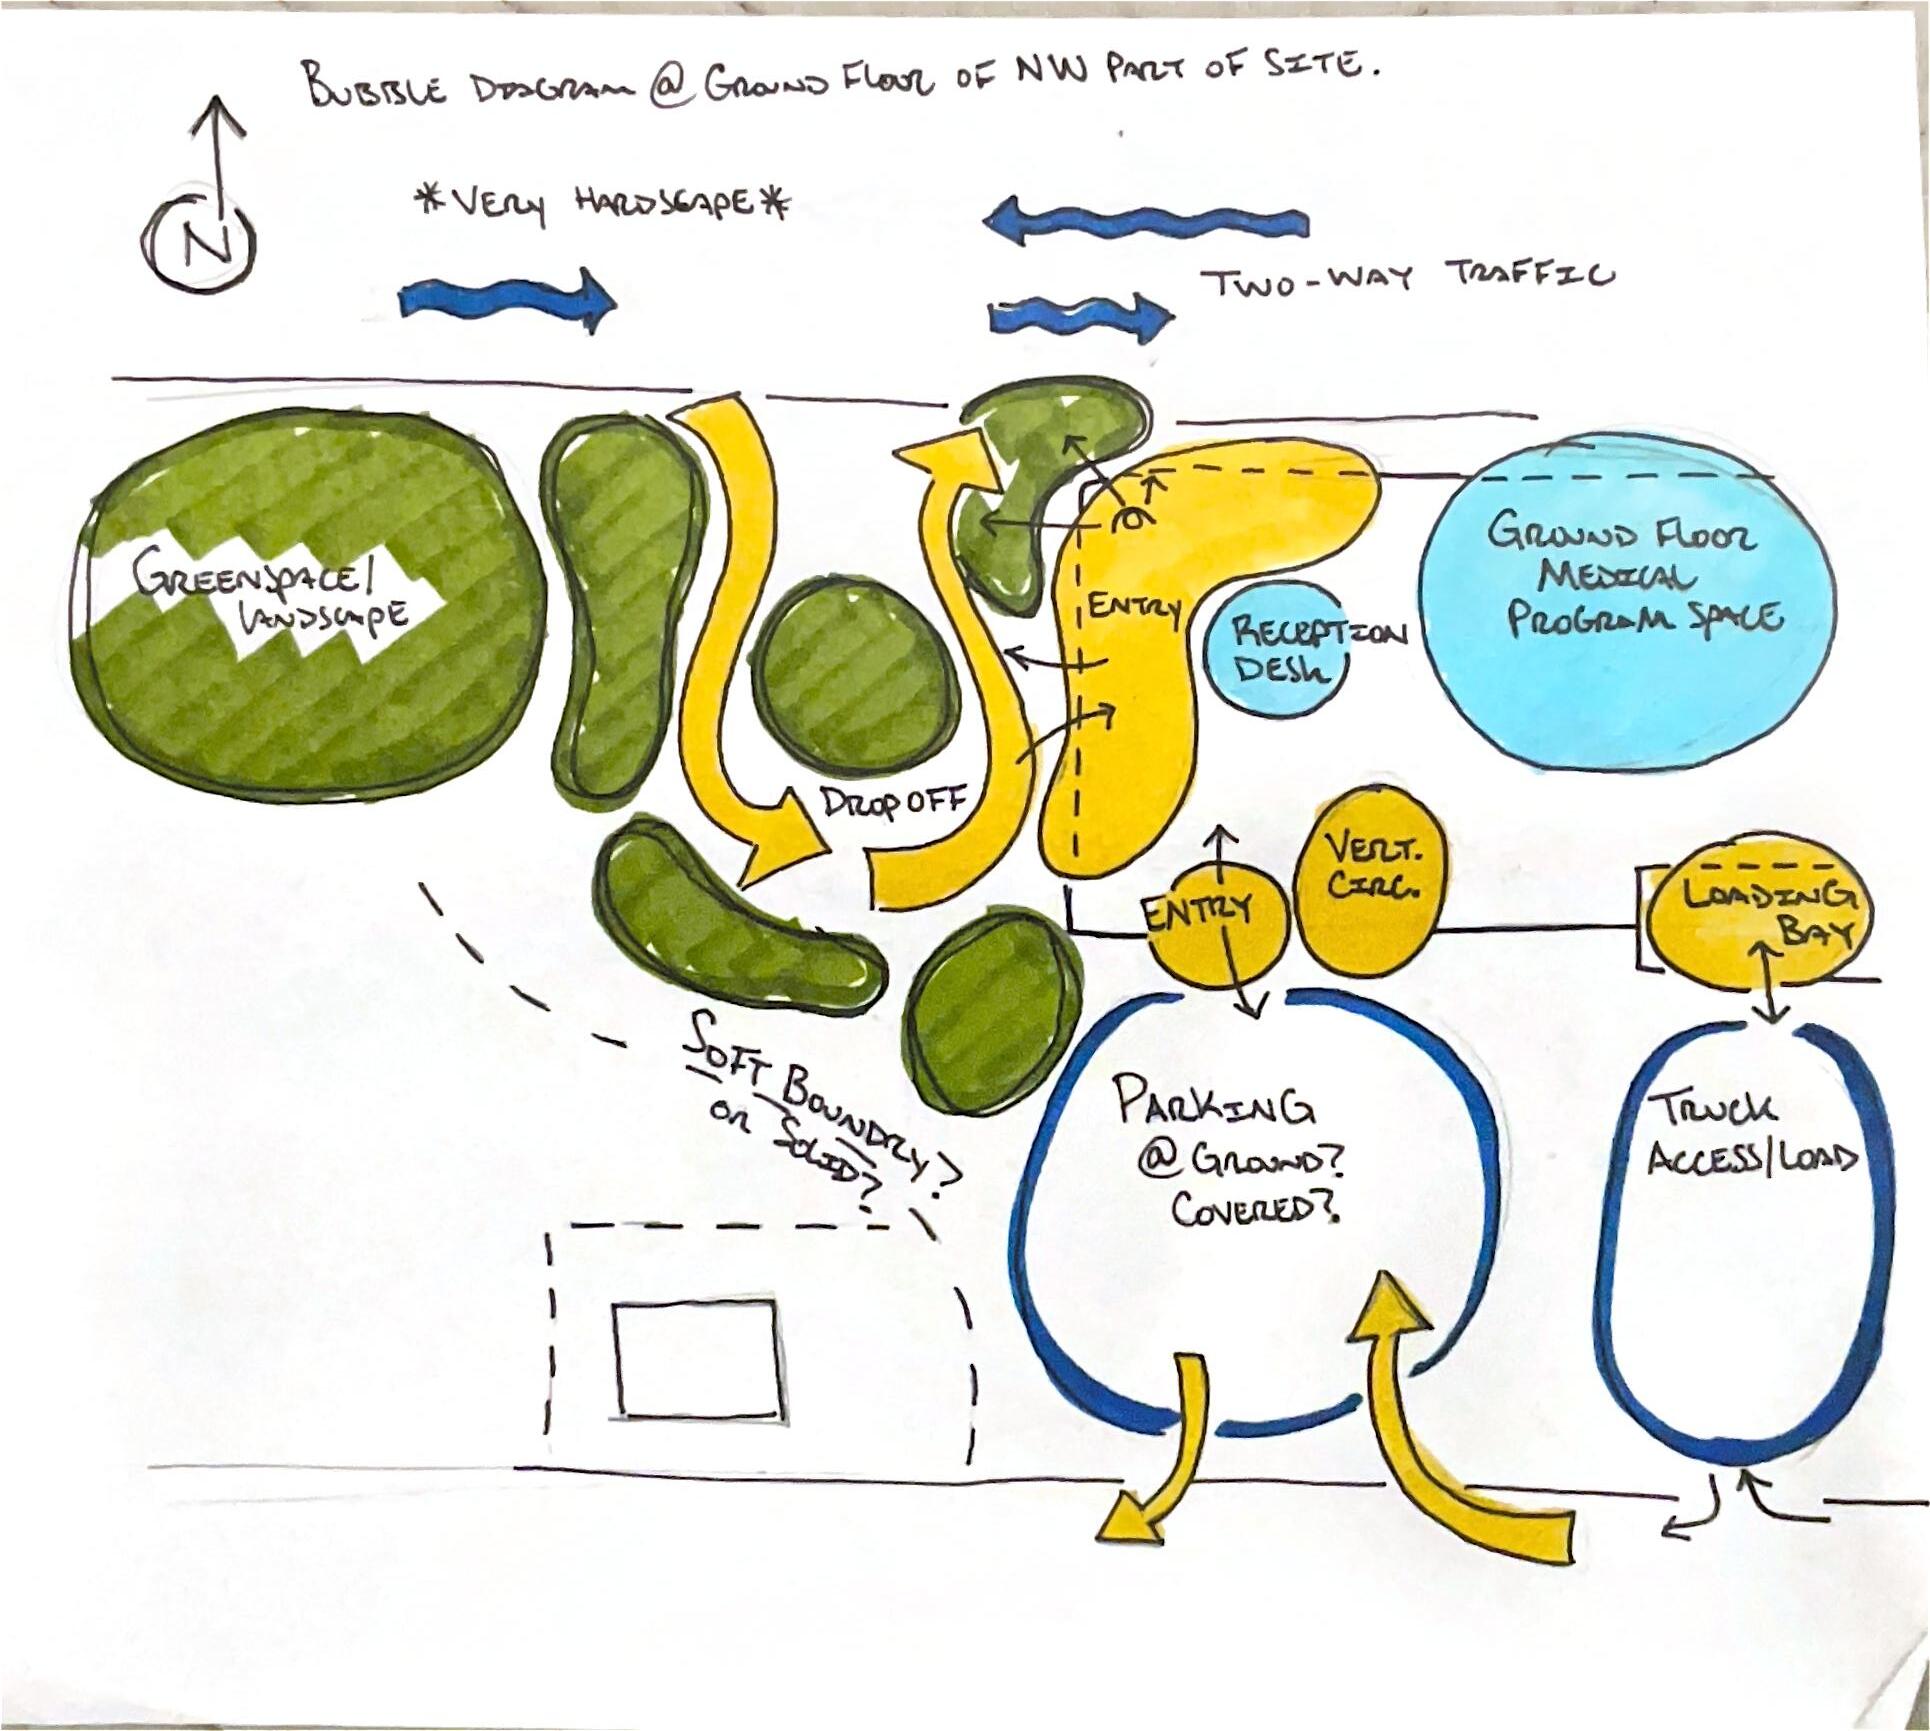 BUBBLE DIAGRAM @ GROUND FLOOR OF NW PART OF SITE.
N
*VERY HARDSCAPE*
TWO-WAY TRAFFIC
GREENSPACE/
LANDSCAPE
ENTRY
RECEPTION
DESK
GROUND FLOOR
MEDICAL
PROGRAM SPACE
DROP OFF
ENTRY
VERT.
CIRC.
LOADING
BAY
SOFT BOUNDRY?
OR SOLID?
PARKING
@ GROUND?
COVERED?
TRUCK
ACCESS/LOAD